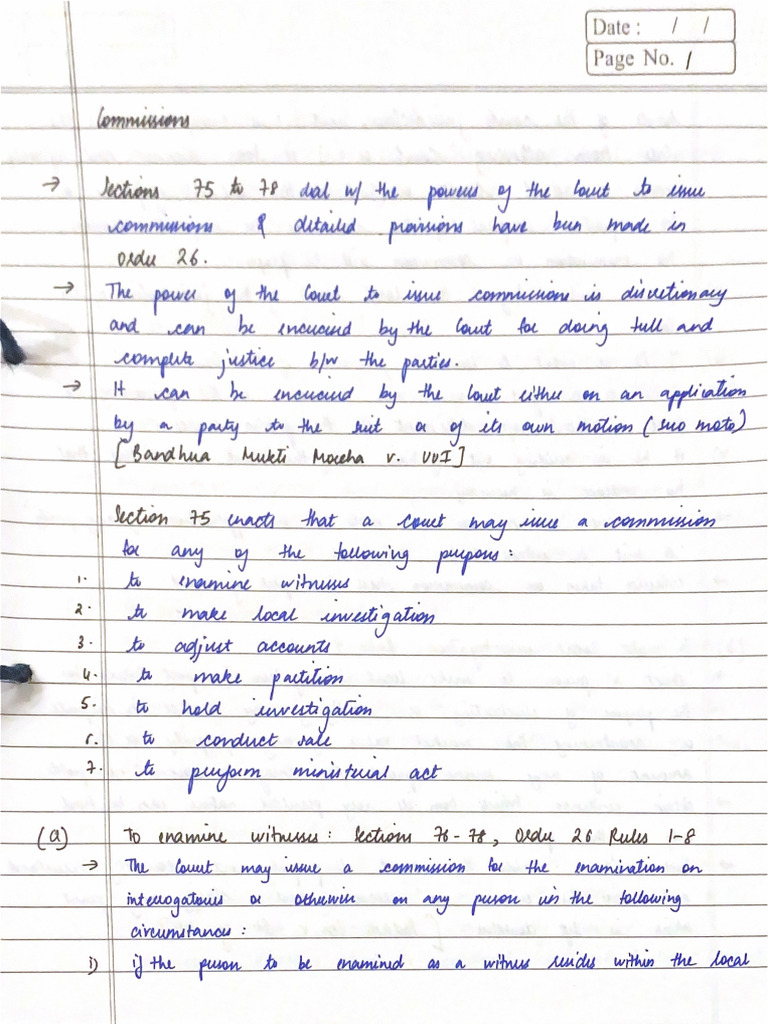 Date : / /
Page No. 1
Commissions
→ Sections 75 to 78 deal w/ the powers of the Court to issue
commissions & detailed provisions have been made in
Order 26.
→ The power of the Court to issue commissions is discretionary
and can be exercised by the Court for doing full and
complete justice b/w the parties.
→ It can be exercised by the Court either on an application
by a party to the suit or of its own motion (suo moto)
[Bandhua Mukti Morcha v. UOI]
Section 75 enacts that a court may issue a commission
for any of the following purposes :
1. to examine witnesses
2. to make local investigation
3. to adjust accounts
4. to make partition
5. to hold investigation
6. to conduct sale
7. to perform ministerial act
(a) To examine witnesses : Sections 76-78, Order 26 Rules 1-8
→ The Court may issue a commission for the examination on
interrogatories or otherwise on any person in the following
circumstances :
i) if the person to be examined as a witness resides within the local